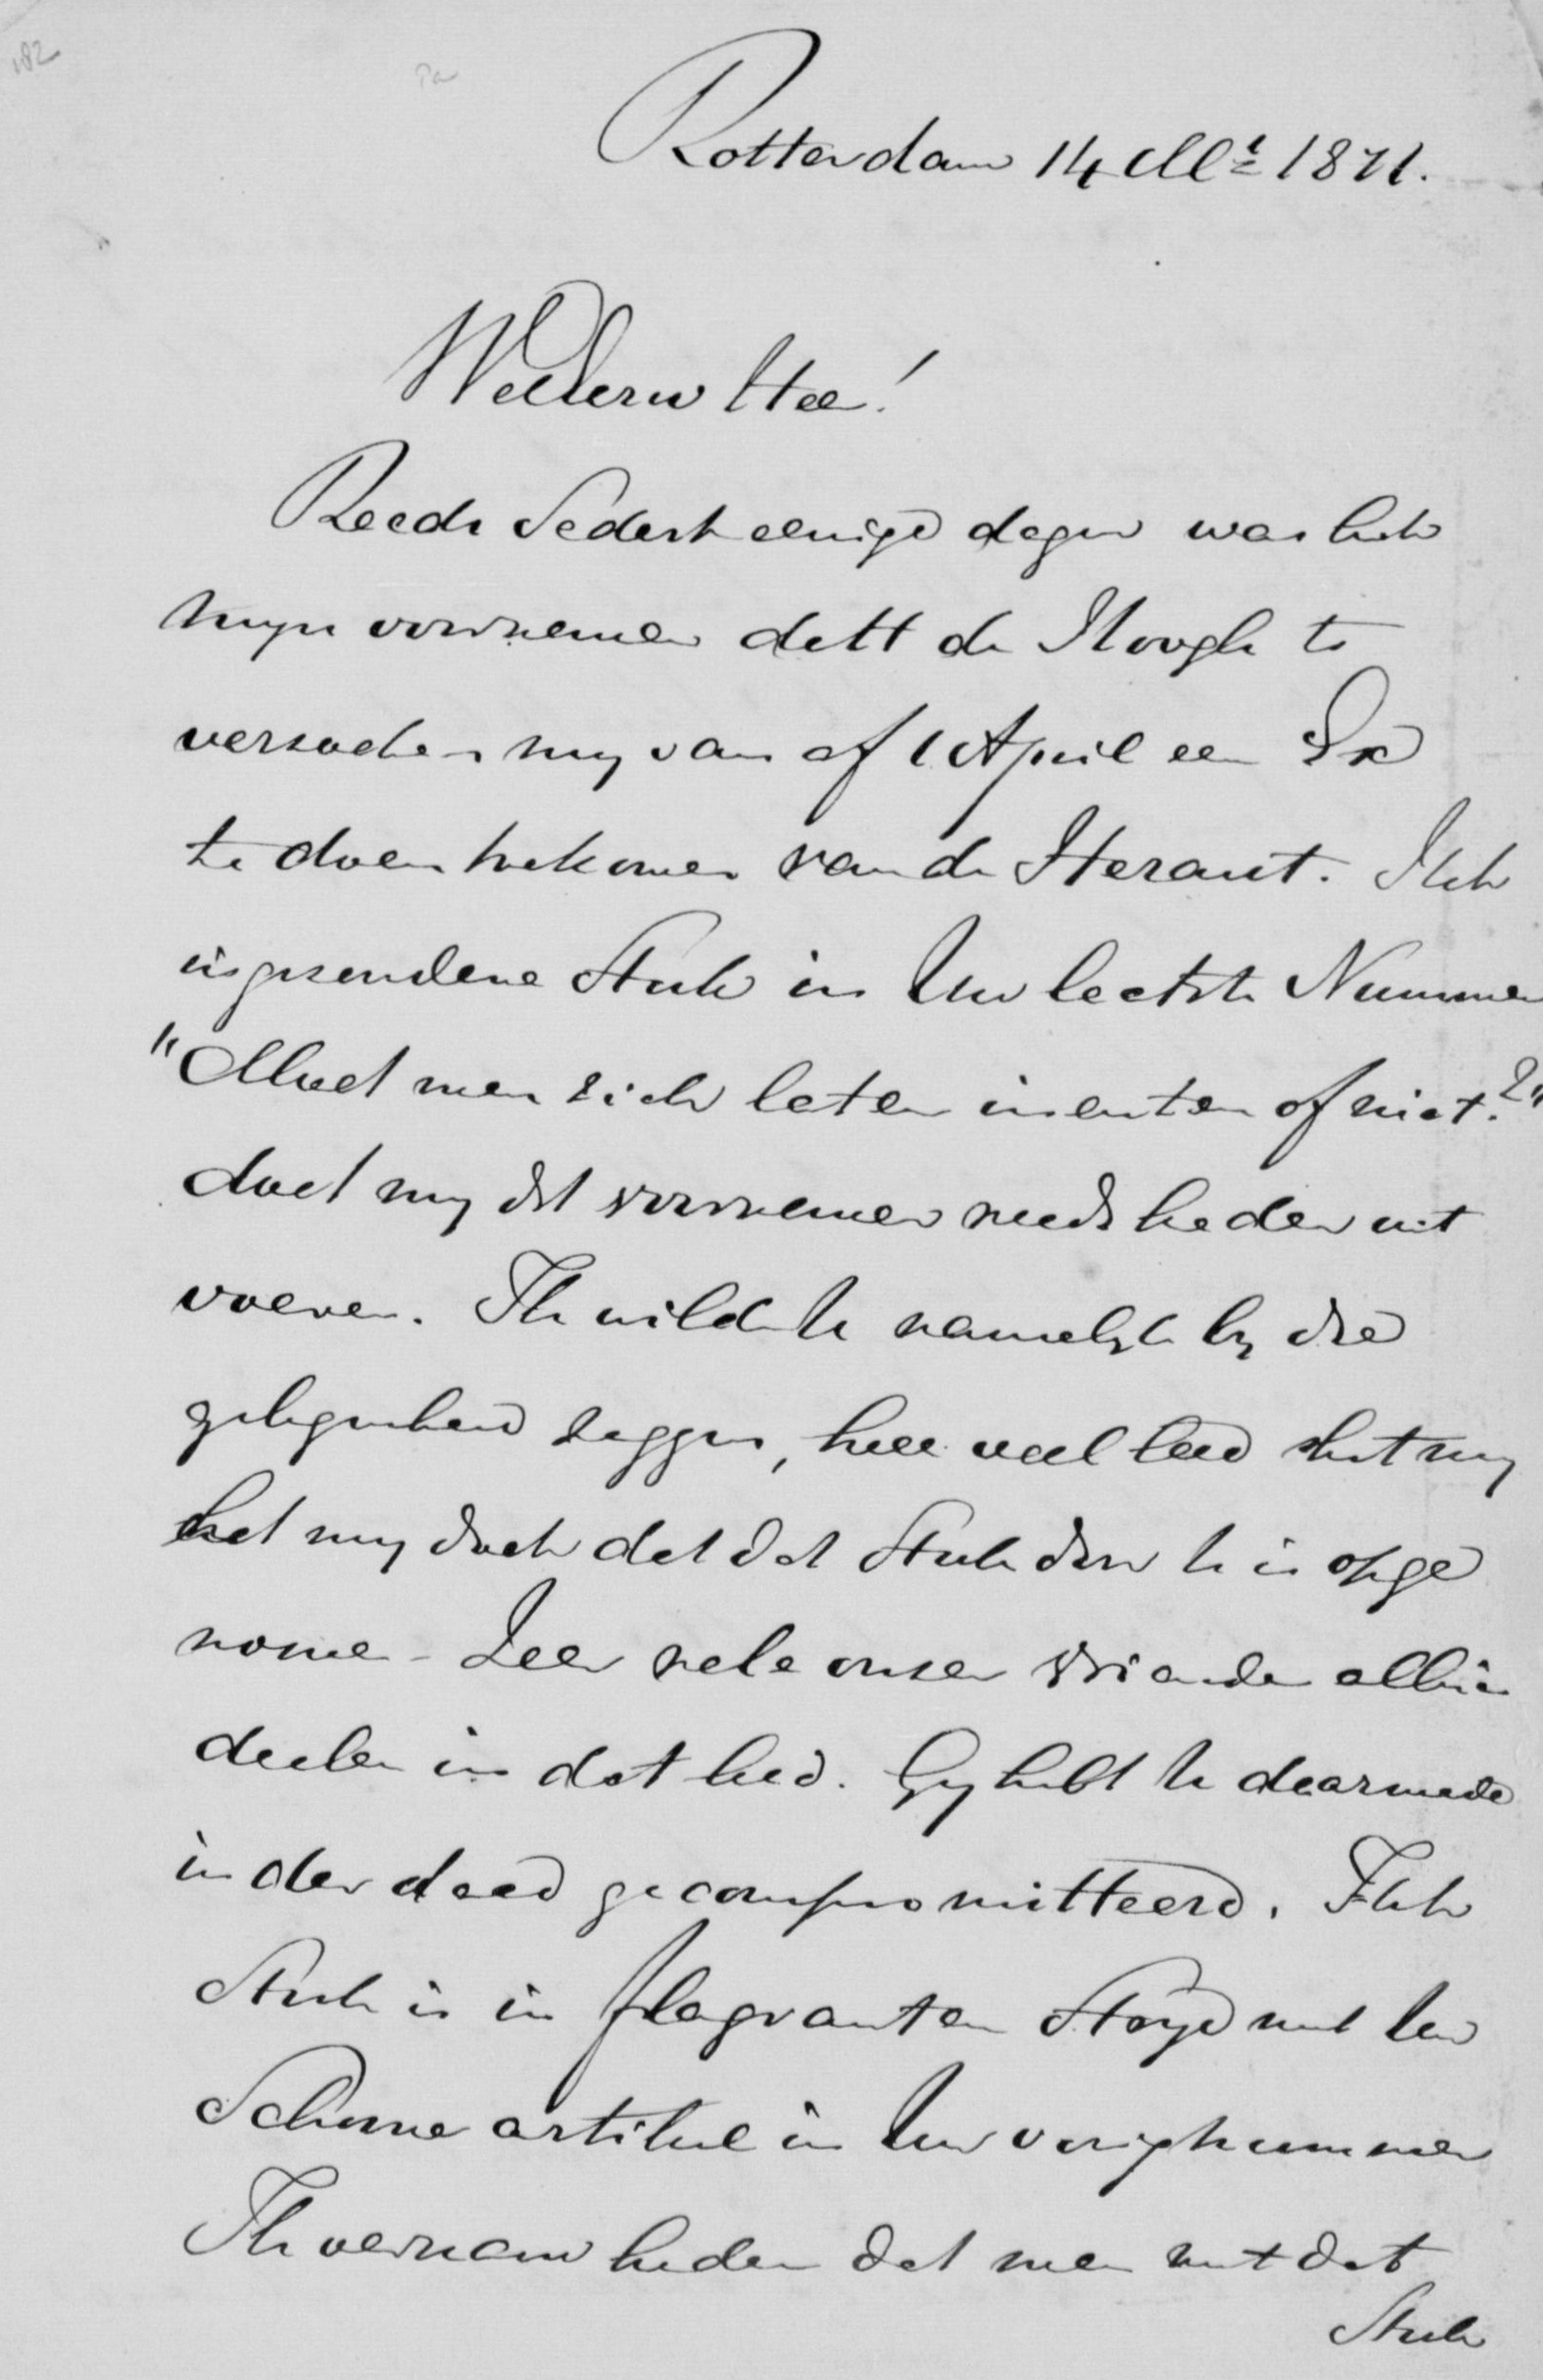 182
Rotterdam 14 Mt 1871.
WelEerw Heer!
Reeds sedert eenige dagen was het
mijn voornemen de HH de Hoogh te
verzoeken my van af 1 April een Ex
te doen toekomen van de Heraut. Het
ingezondene Stuk in Uw laatste Nummer
"Moet men zich laten inenten of niet?"
doet my dat voornemen reeds heden uit
voeren. Ik wilde U namelyk by die
gelegenheid zeggen, hoe veel leed
het my doet dat dat Stuk door U is opge
nomen - Zeer vele onzer vrienden alhier
deelen in dat leed. Gy hebt U daarmede
inderdaad gecompromitteerd. Het
Stuk is in flagranten Stryd met Uw
Schoone artikel in Uw vorig nummer
Ik vernam heden dat men met dat
Stuk